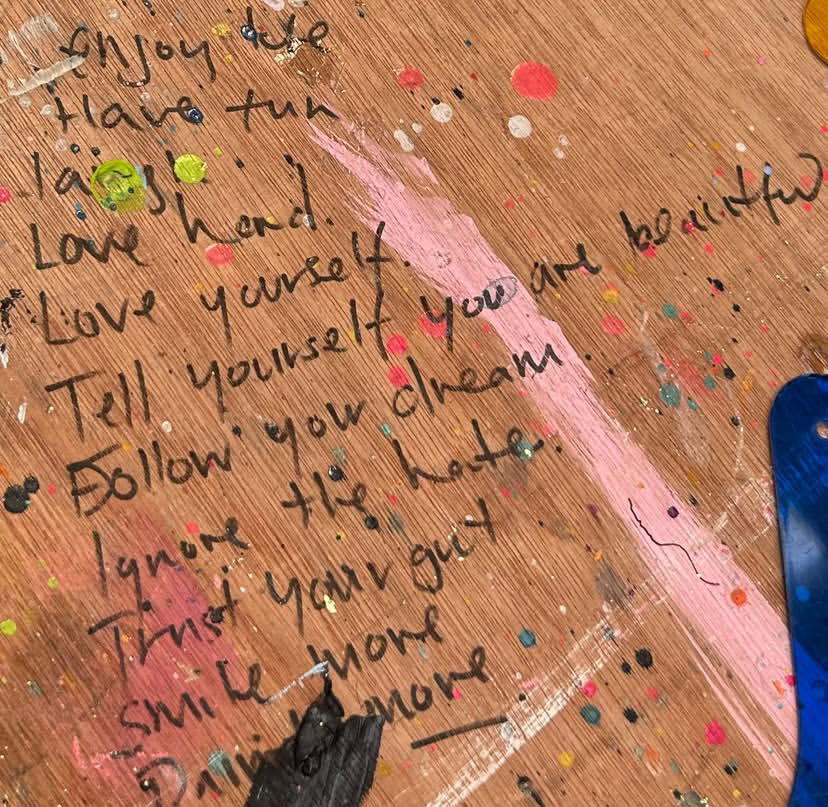 Enjoy life
Have fun
laugh
Love hard.
Love yourself.
Tell yourself you are beautiful
Follow your dream.
Ignore the hate.
Trust your gut
Smile more
more